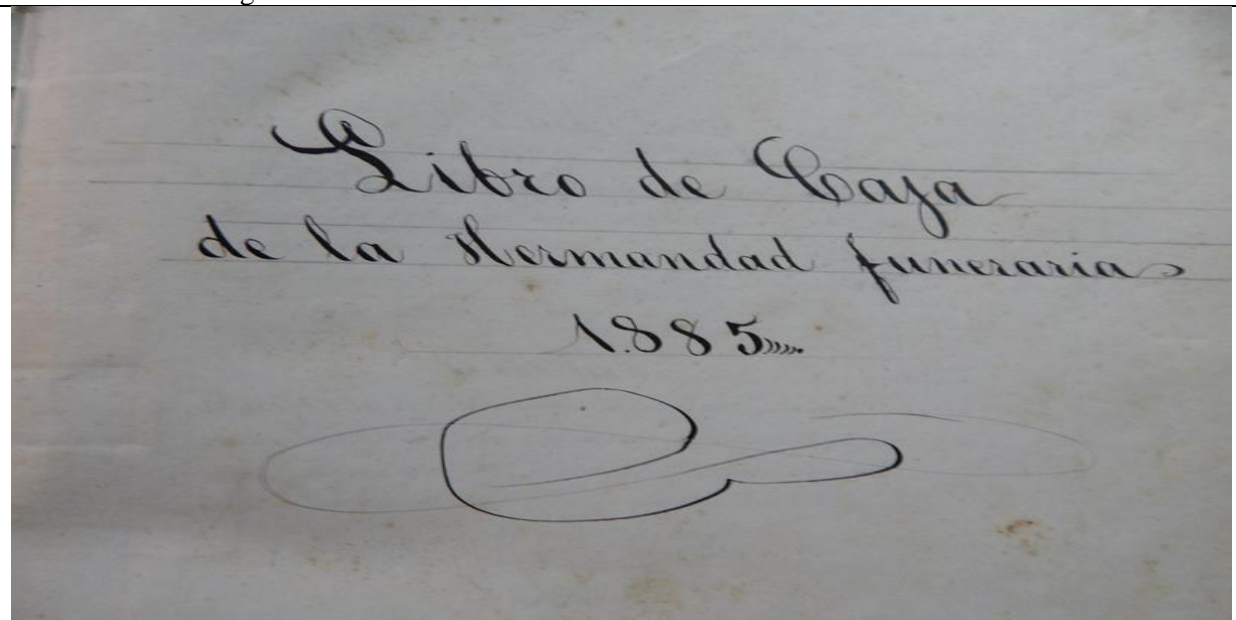 Libro de Caja
de la Hermandad funeraria
1.885